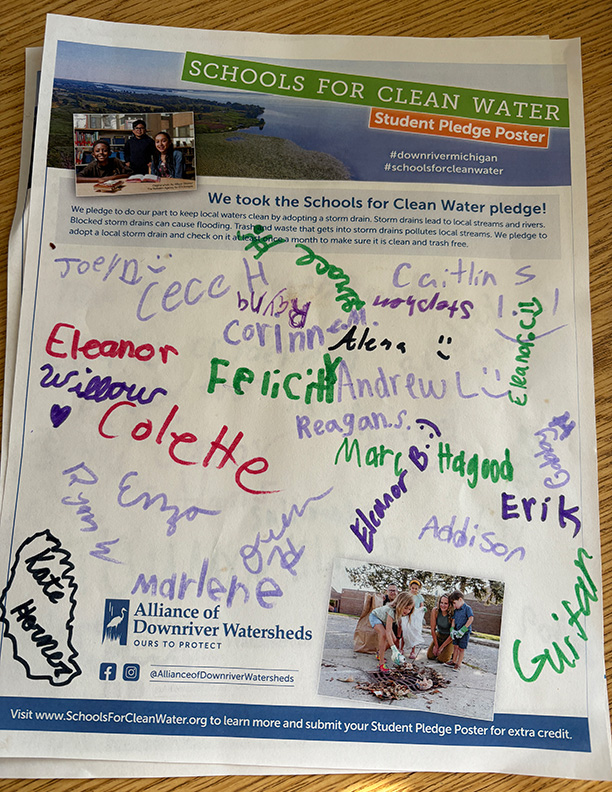 SCHOOLS FOR CLEAN WATER
Student Pledge Poster
#downrivermichigan
#schoolsforcleanwater
We took the Schools for Clean Water pledge!
We pledge to do our part to keep local waters clean by adopting a storm drain. Storm drains lead to local streams and rivers.
Blocked storm drains can cause flooding. Trash and waste that gets into storm drains pollutes local streams. We pledge to
adopt a local storm drain and check on it at least once a month to make sure it is clean and trash free.
Joey D
Cece H
Grace H
Caitlin S
Rayna
Stephon
Corinne M.
Alena
Eleanor C
Eleanor
Felicity
Andrew L
Willow
Colette
Reagan.S.
Marc Hagood
Eleanor B
Erik
Ryan W
Enzo
Quinn
Addison
Marlene
Kate
Guitar
Alliance of
Downriver Watersheds
OURS TO PROTECT
@AllianceofDownriverWatersheds
Visit www.SchoolsForCleanWater.org to learn more and submit your Student Pledge Poster for extra credit.